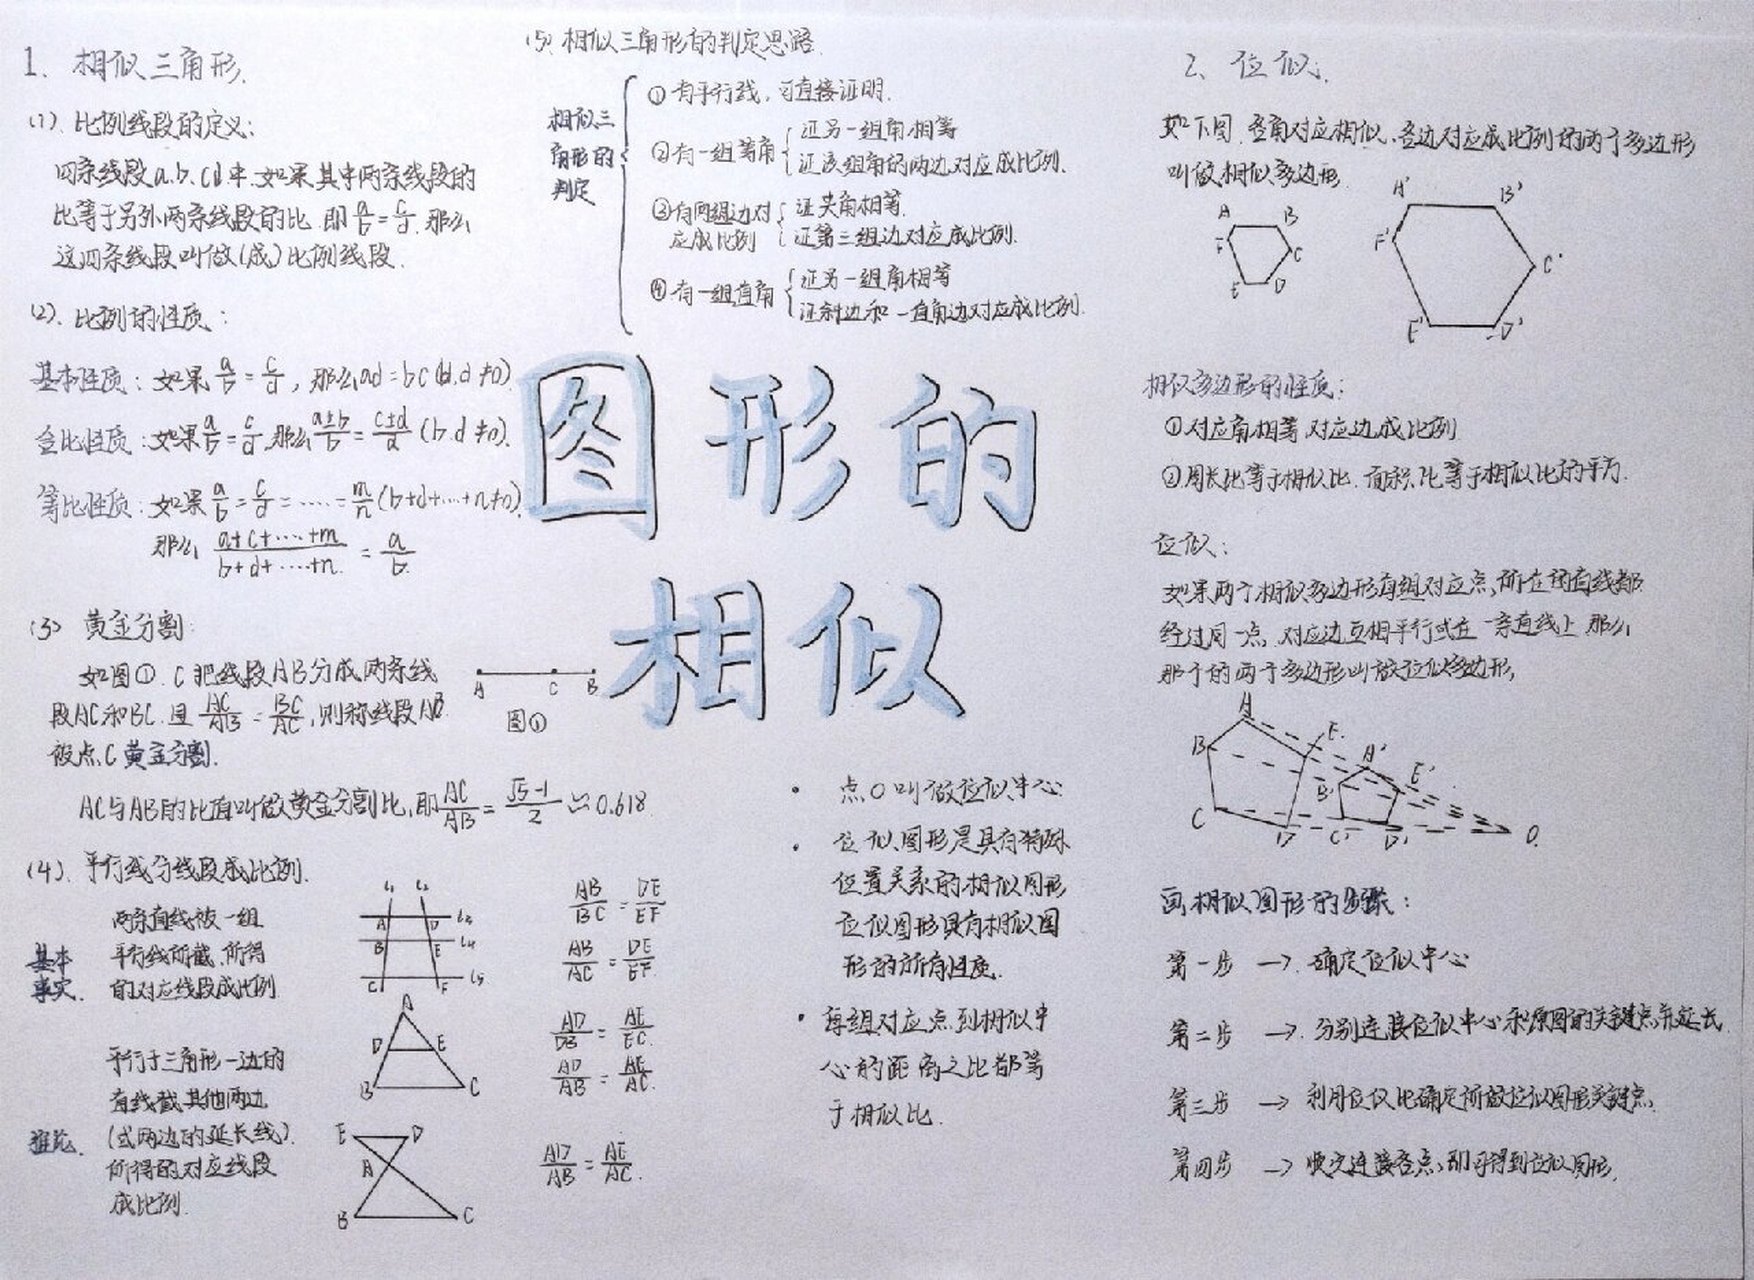 1、相似三角形.
(1) 比例线段的定义:
四条线段a.b.cd中.如果其中两条线段的
比等于另外两条线段的比.即a/b=c/d.那么
这四条线段叫做(成)比例线段.
(2). 比例的性质:
基本性质: 如果a/b=c/d, 那么ad=bc(b.d≠0)
合比性质: 如果a/b=c/d,那么a±b/b=c±d/d(b.d≠0).
等比性质: 如果a/b=c/d=……=m/n(b+d+…+n≠0)
那么 a+c+……+m/b+d+……+n.=a/b.
(3) 黄金分割:
如图①.C把线段AB分成两条线
段AC和BC.且AC/AB=BC/AC,则称线段AB
被点C黄金分割.
A C B
图①
AC与AB的比值叫做黄金分割比,即AC/AB=√5-1/2≈0.618
(4). 平行线分线段成比例.
基本
事实.
两条直线被一组
平行线所截,所得
的对应线段成比例
A D
B E
C F
AB/BC=DE/EF
AB/AC=DE/EF.
推论.
平行于三角形一边的
直线截其他两边
(或两边的延长线)
所得的对应线段
成比例.
A
D E
B C
AD/DB=AE/EC.
AD/AB=AE/AC.
E D
A
B C
AD/AB=AE/AC.
(5) 相似三角形的判定思路
相似三
角形的
判定
①有平行线,可直接证明.
②有一组等角
证另一组角相等
证该组角的两边对应成比例.
③有两组边对
应成比例
证夹角相等.
证第三组边对应成比例.
④有一组直角
证另一组角相等
证斜边和一直角边对应成比例.
图形的
相似
· 点O叫做位似中心
· 位似图形是具有特殊
位置关系的相似图形
位似图形具有相似图
形的所有性质.
· 每组对应点到相似中
心的距离之比都等
于相似比.
2、位似:
如下图.各角对应相似.各边对应成比例的两个多边形
叫做相似多边形
A B
F C
E D
A' B'
F' C'
E' D'
相似多边形的性质:
①对应角相等 对应边成比例
②周长比等于相似比.面积比等于相似比的平方.
位似:
如果两个相似多边形每组对应点所在的直线都
经过同一点.对应边互相平行或在一条直线上 那么
那个的两个多边形叫做位似多边形,
A
B F.
A' E'
B'
C D C' D' O.
画相似图形的步骤:
第一步 → 确定位似中心
第二步 → 分别连接位似中心和原图的关键点并延长
第三步 → 利用位似比确定所做位似图形关键点.
第四步 → 顺次连接各点,即可得到位似图形.